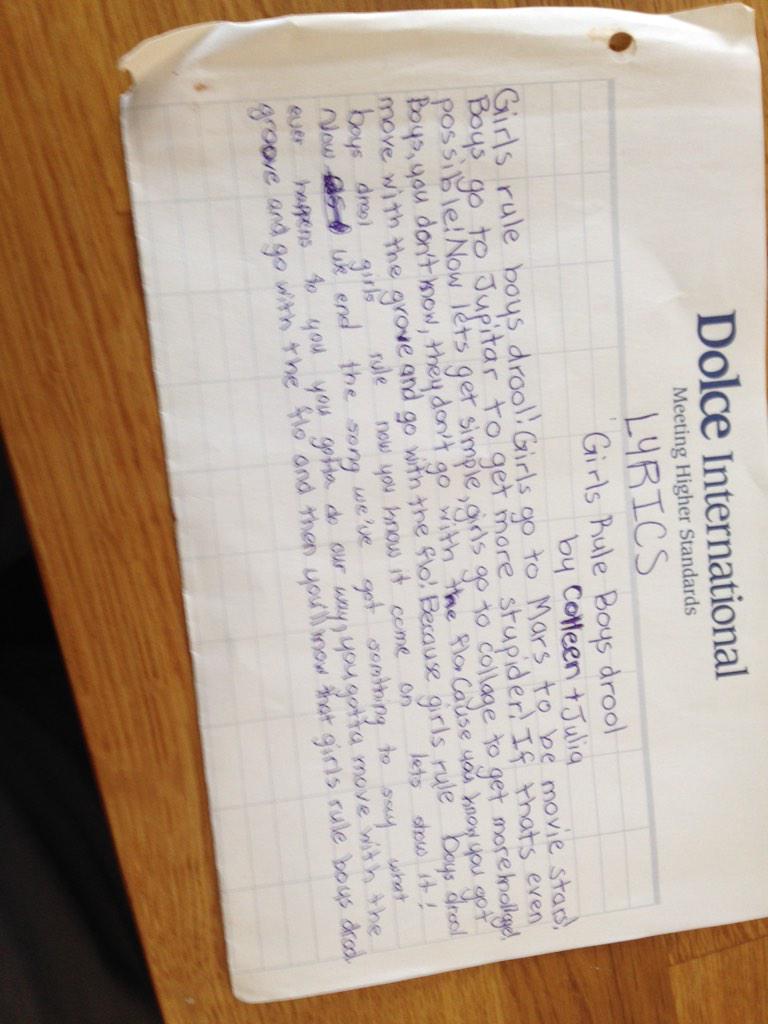 Dolce International
Meeting Higher Standards
LYRICS
Girls Rule Boys drool
by Colleen + Julia
Girls rule boys drool! Girls go to Mars to be movie stars!
Boys go to Jupitar to get more stupider! If thats even
possible! Now lets get simple, girls go to collage to get more
Boys, you don't know, they don't go with the flo cause you know you got
move with the grove and go with the flo! Because girls rule boys drool
boys drool girls rule now you know it come on lets show it!
Now we end the song we've got somthing to say what
ever happens to you you gotta do our way, you gotta move with the
groove and go with the flo and then you'll know that girls rule boys drool